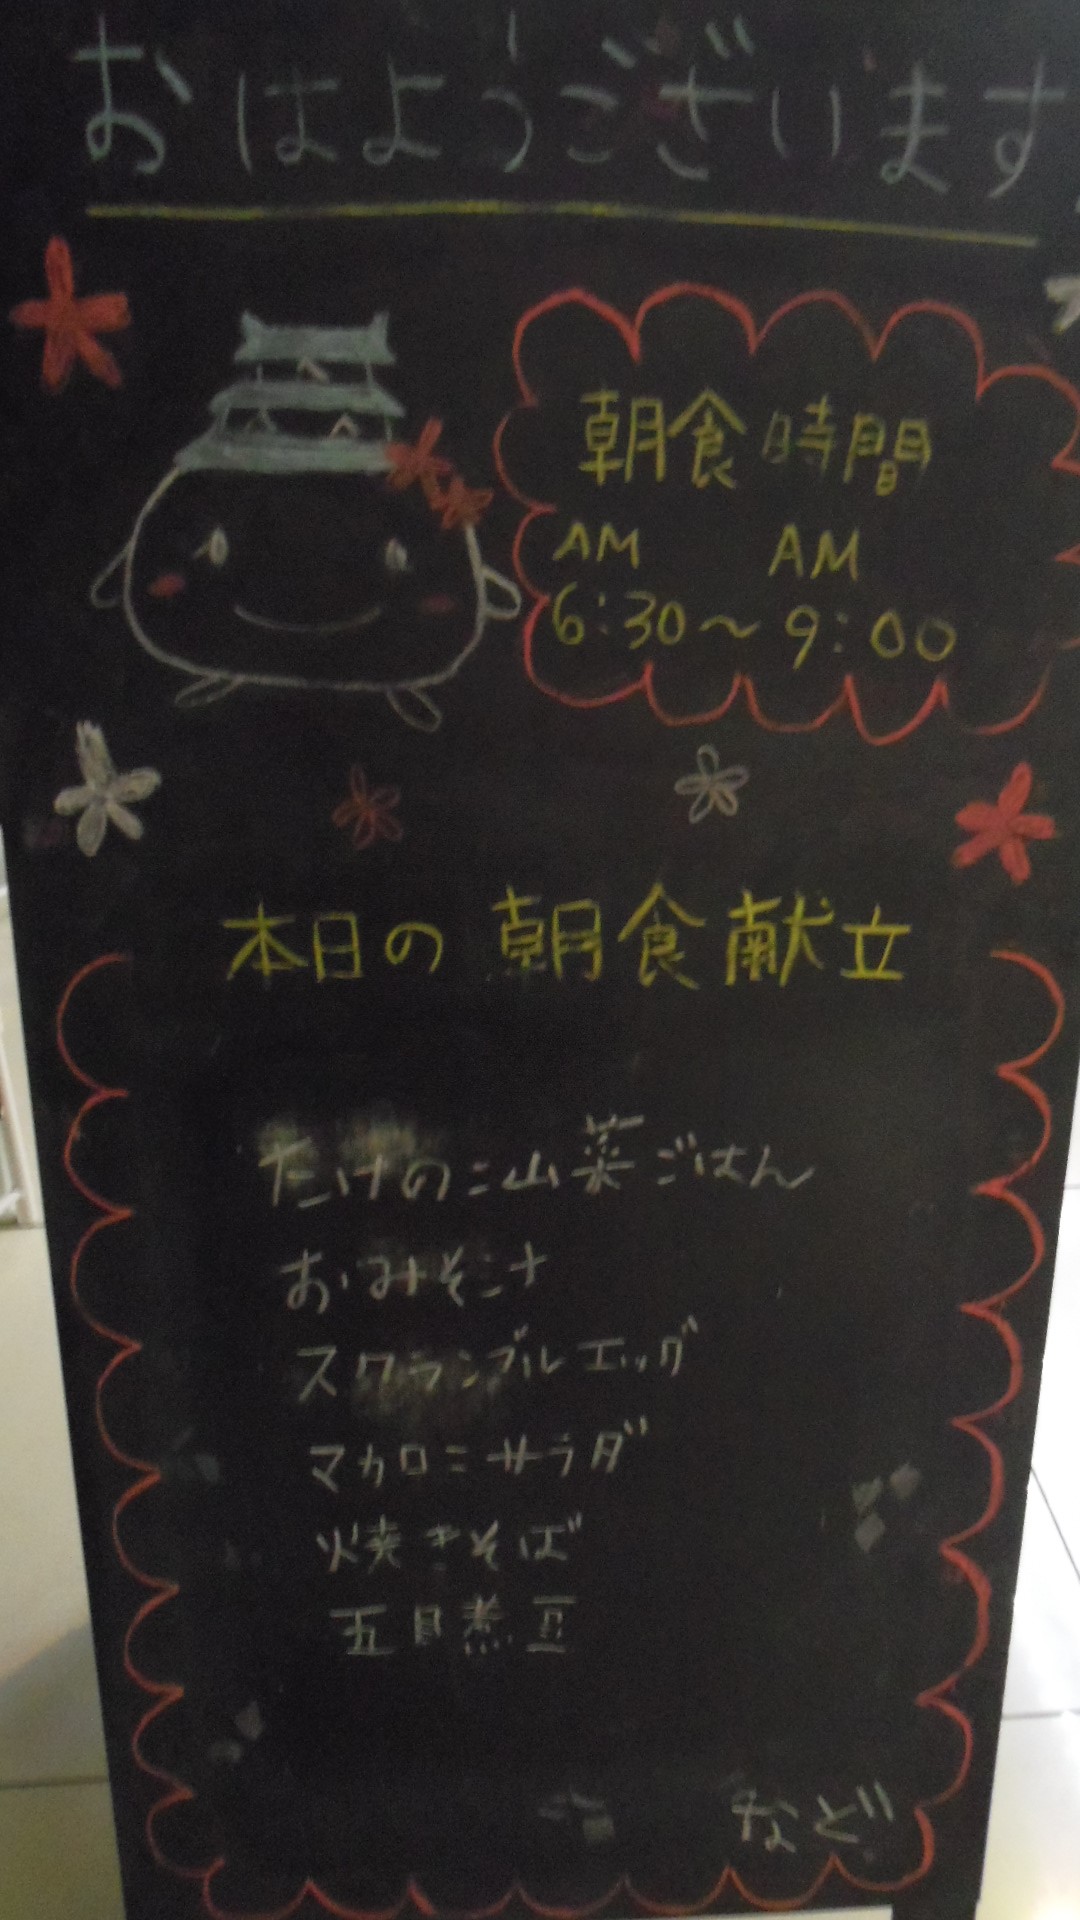 おはようございます
朝食時間
AM AM
6:30〜9:00
本日の朝食献立
たけのこ山菜ごはん
おみそ汁
スクランブルエッグ
マカロニサラダ
焼きそば
五目煮豆
など